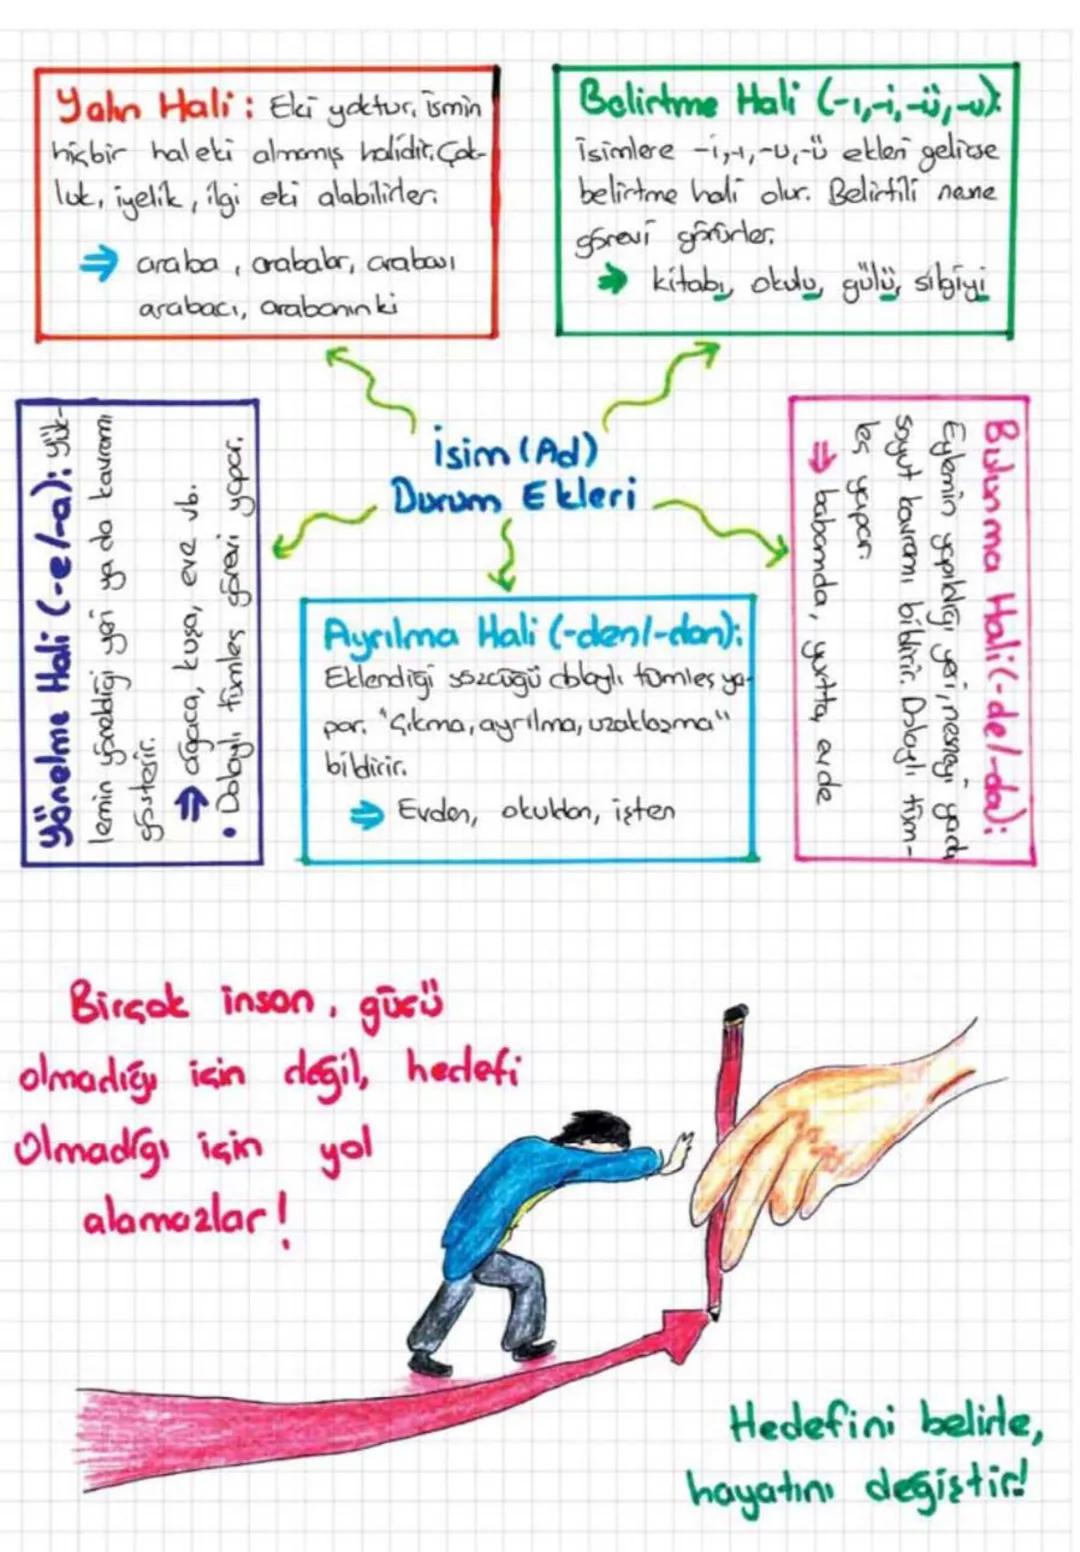 Yalın Hali : Eki yoktur, ismin
hiçbir hal eki almamış halidir. Çok-
luk, iyelik, ilgi eki alabilirler.
⇒ araba, arabalar, arabası
arabacı, arabanınki
Belirtme Hali (-ı,-i,-ü,-u):
İsimlere -i,-ı,-u,-ü ekleri gelirse
belirtme hali olur. Belirtili nesne
görevi görürler.
➔ kitabı, okulu, gülü, silgiyi
İsim (Ad)
Durum Ekleri
Yönelme Hali (-e/-a): Yük-
lemin yöneldiği yeri ya da kavramı
gösterir.
⇒ ağaca, kuşa, eve vb.
• Dolaylı tümleç görevi yapar.
Ayrılma Hali (-den/-dan):
Eklendiği sözcüğü dolaylı tümleç ya-
par. "Çıkma, ayrılma, uzaklaşma"
bildirir.
⇒ Evden, okuldan, işten
Bulunma Hali (-de/-da):
Eylemin yapıldığı yeri, nesneyi yada
soyut kavramı bildirir. Dolaylı tüm-
leç yapar.
⇒ babamda, yurtta, evde
Birçok insan, gücü
olmadığı için değil, hedefi
olmadığı için yol
alamazlar!
Hedefini belirle,
hayatını değiştir!